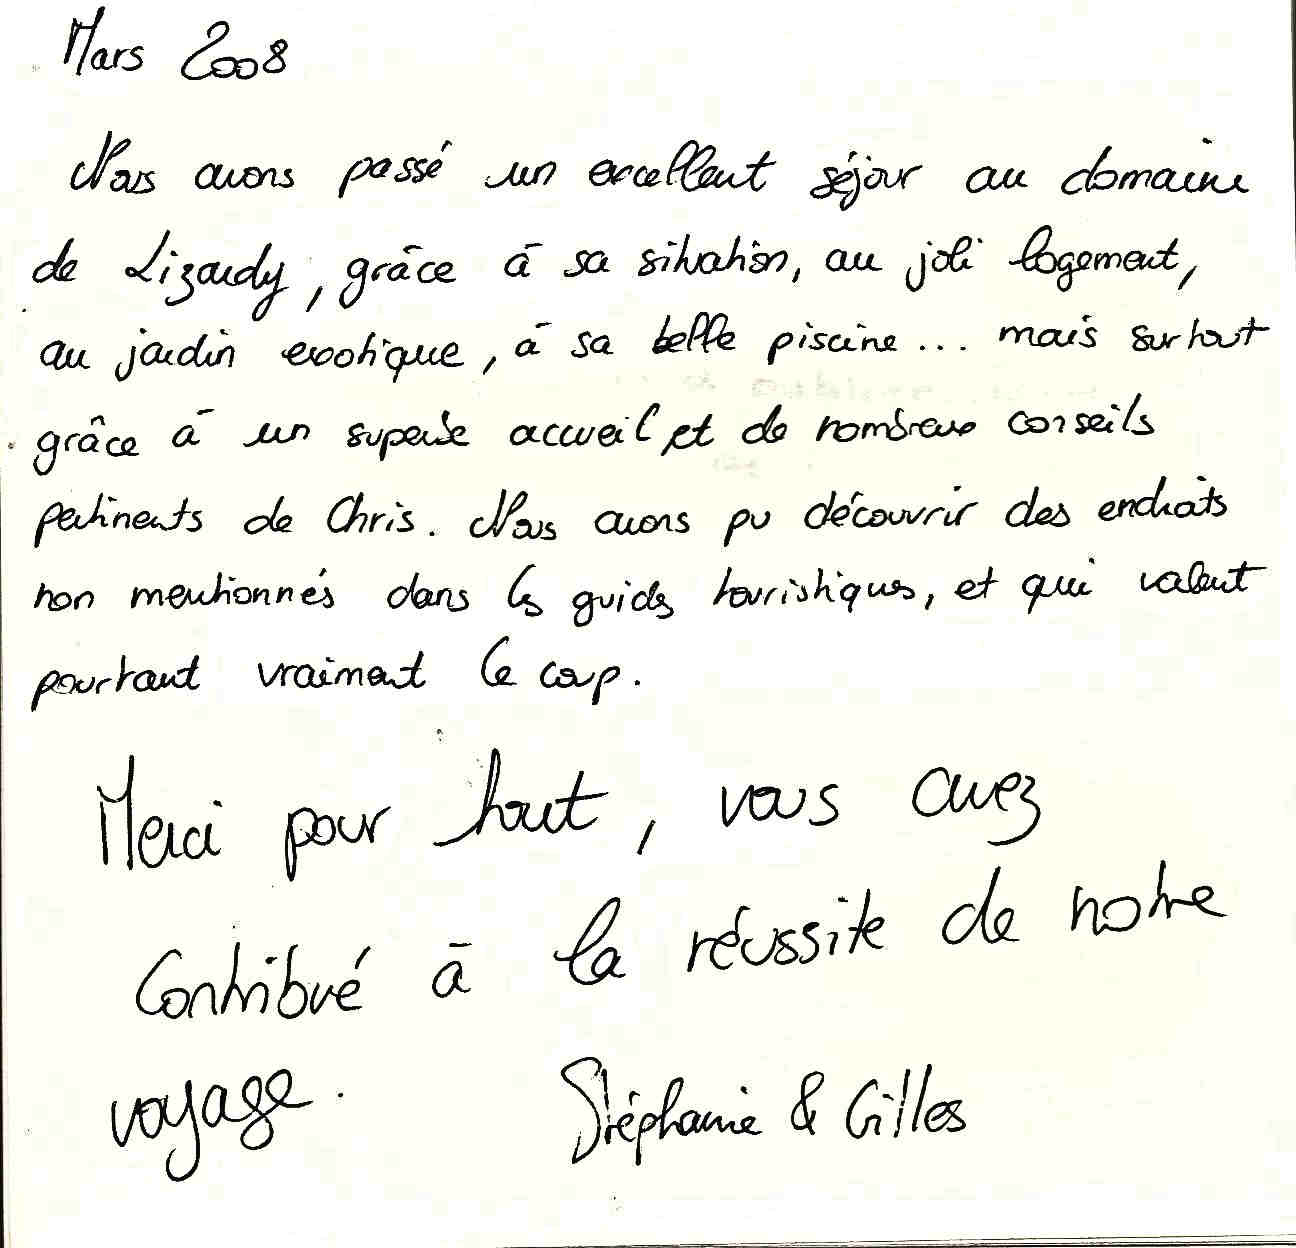 Mars 2008
Nous avons passé un excellent séjour au domaine
de Lizardy, grâce à sa situation, au joli logement,
au jardin exotique, à sa belle piscine... mais surtout
grâce à un superbe accueil et de nombreux conseils
pertinents de Chris. Nous avons pu découvrir des endroits
non mentionnés dans les guides touristiques, et qui valent
pourtant vraiment le coup.
Merci pour tout, vous avez
contribué à la réussite de notre
voyage.
Stéphanie & Gilles